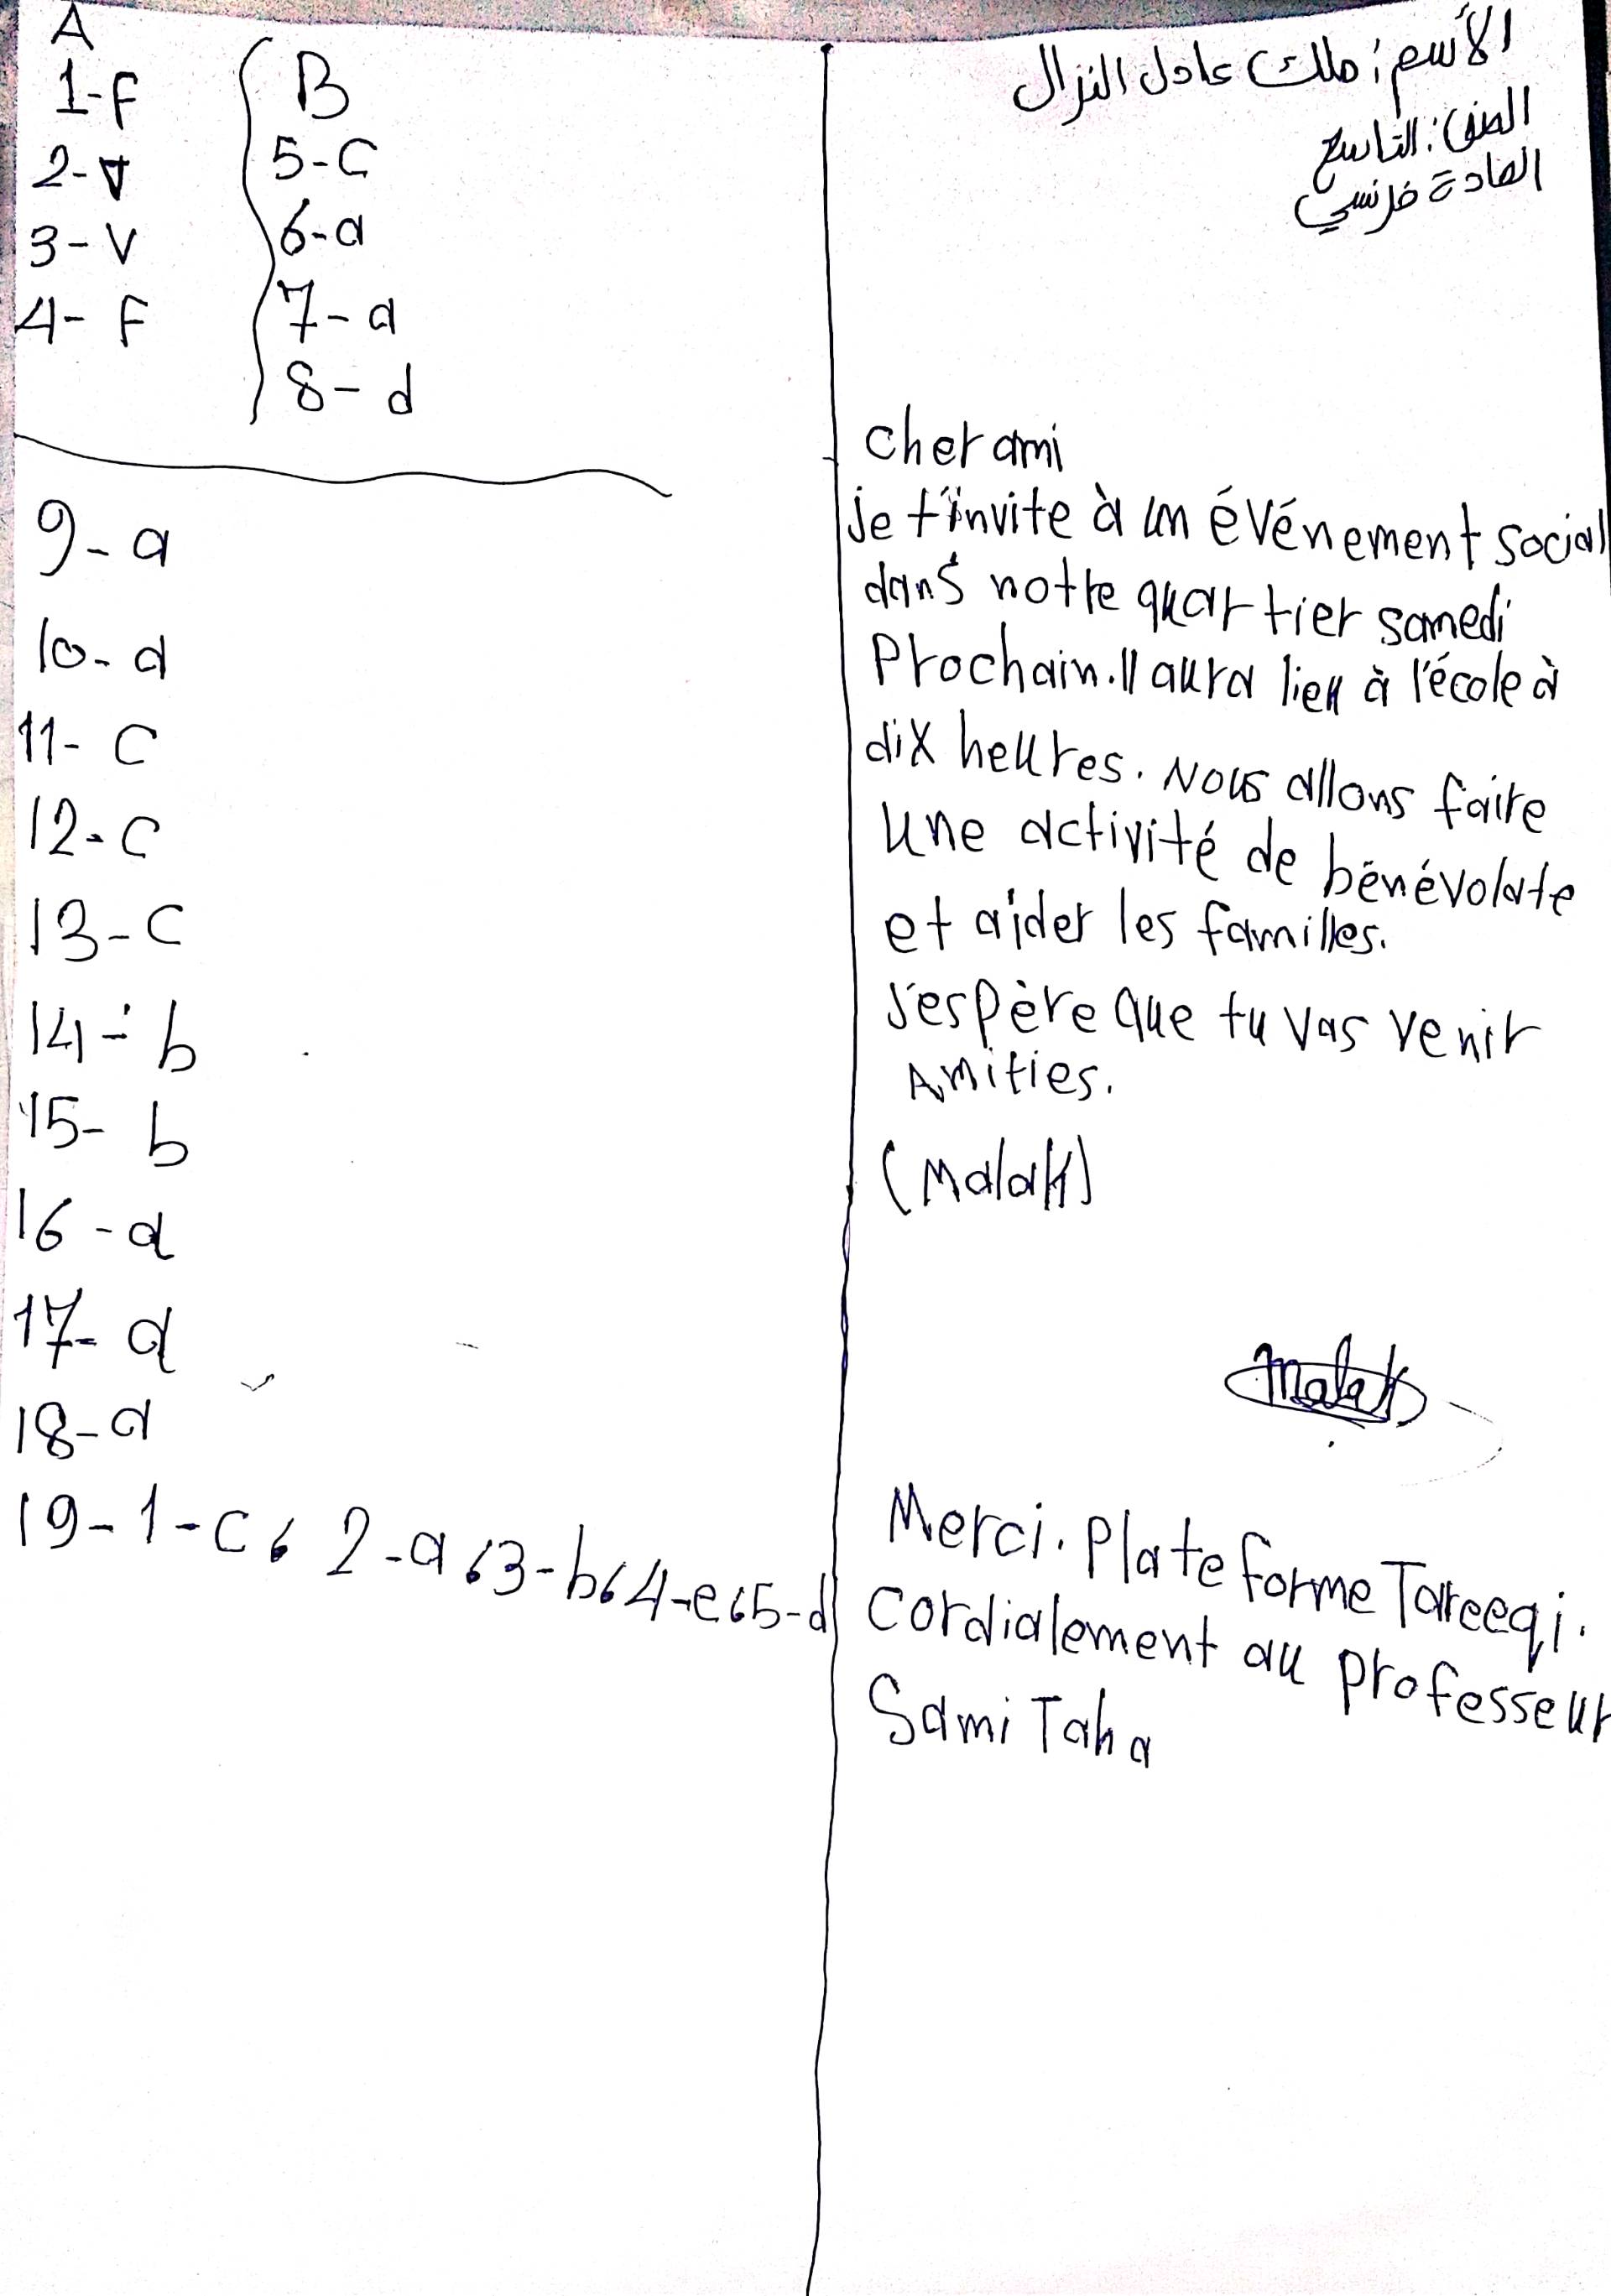 A
1-F
2-V
3-V
4-F
B
5-C
6-a
7-a
8-d
9-a
10-d
11-C
12-C
13-C
14-b
15-b
16-a
17-a
18-a
19-1-c، 2-a، 3-b، 4-e، 5-d
الأسم: ملك عادل النزال
الصف: التاسع
المادة فرنسي
cher ami
je t'invite à un événement social
dans notre quartier samedi
Prochain. Il aura lieu à l'école à
dix heures. Nous allons faire
une activité de bénévolate
et aider les familles.
J'espère que tu vas venir
Amities.
(Malak)
Malak
Merci. Plate forme Tareeqi.
Cordialement au professeur
Sami Taha